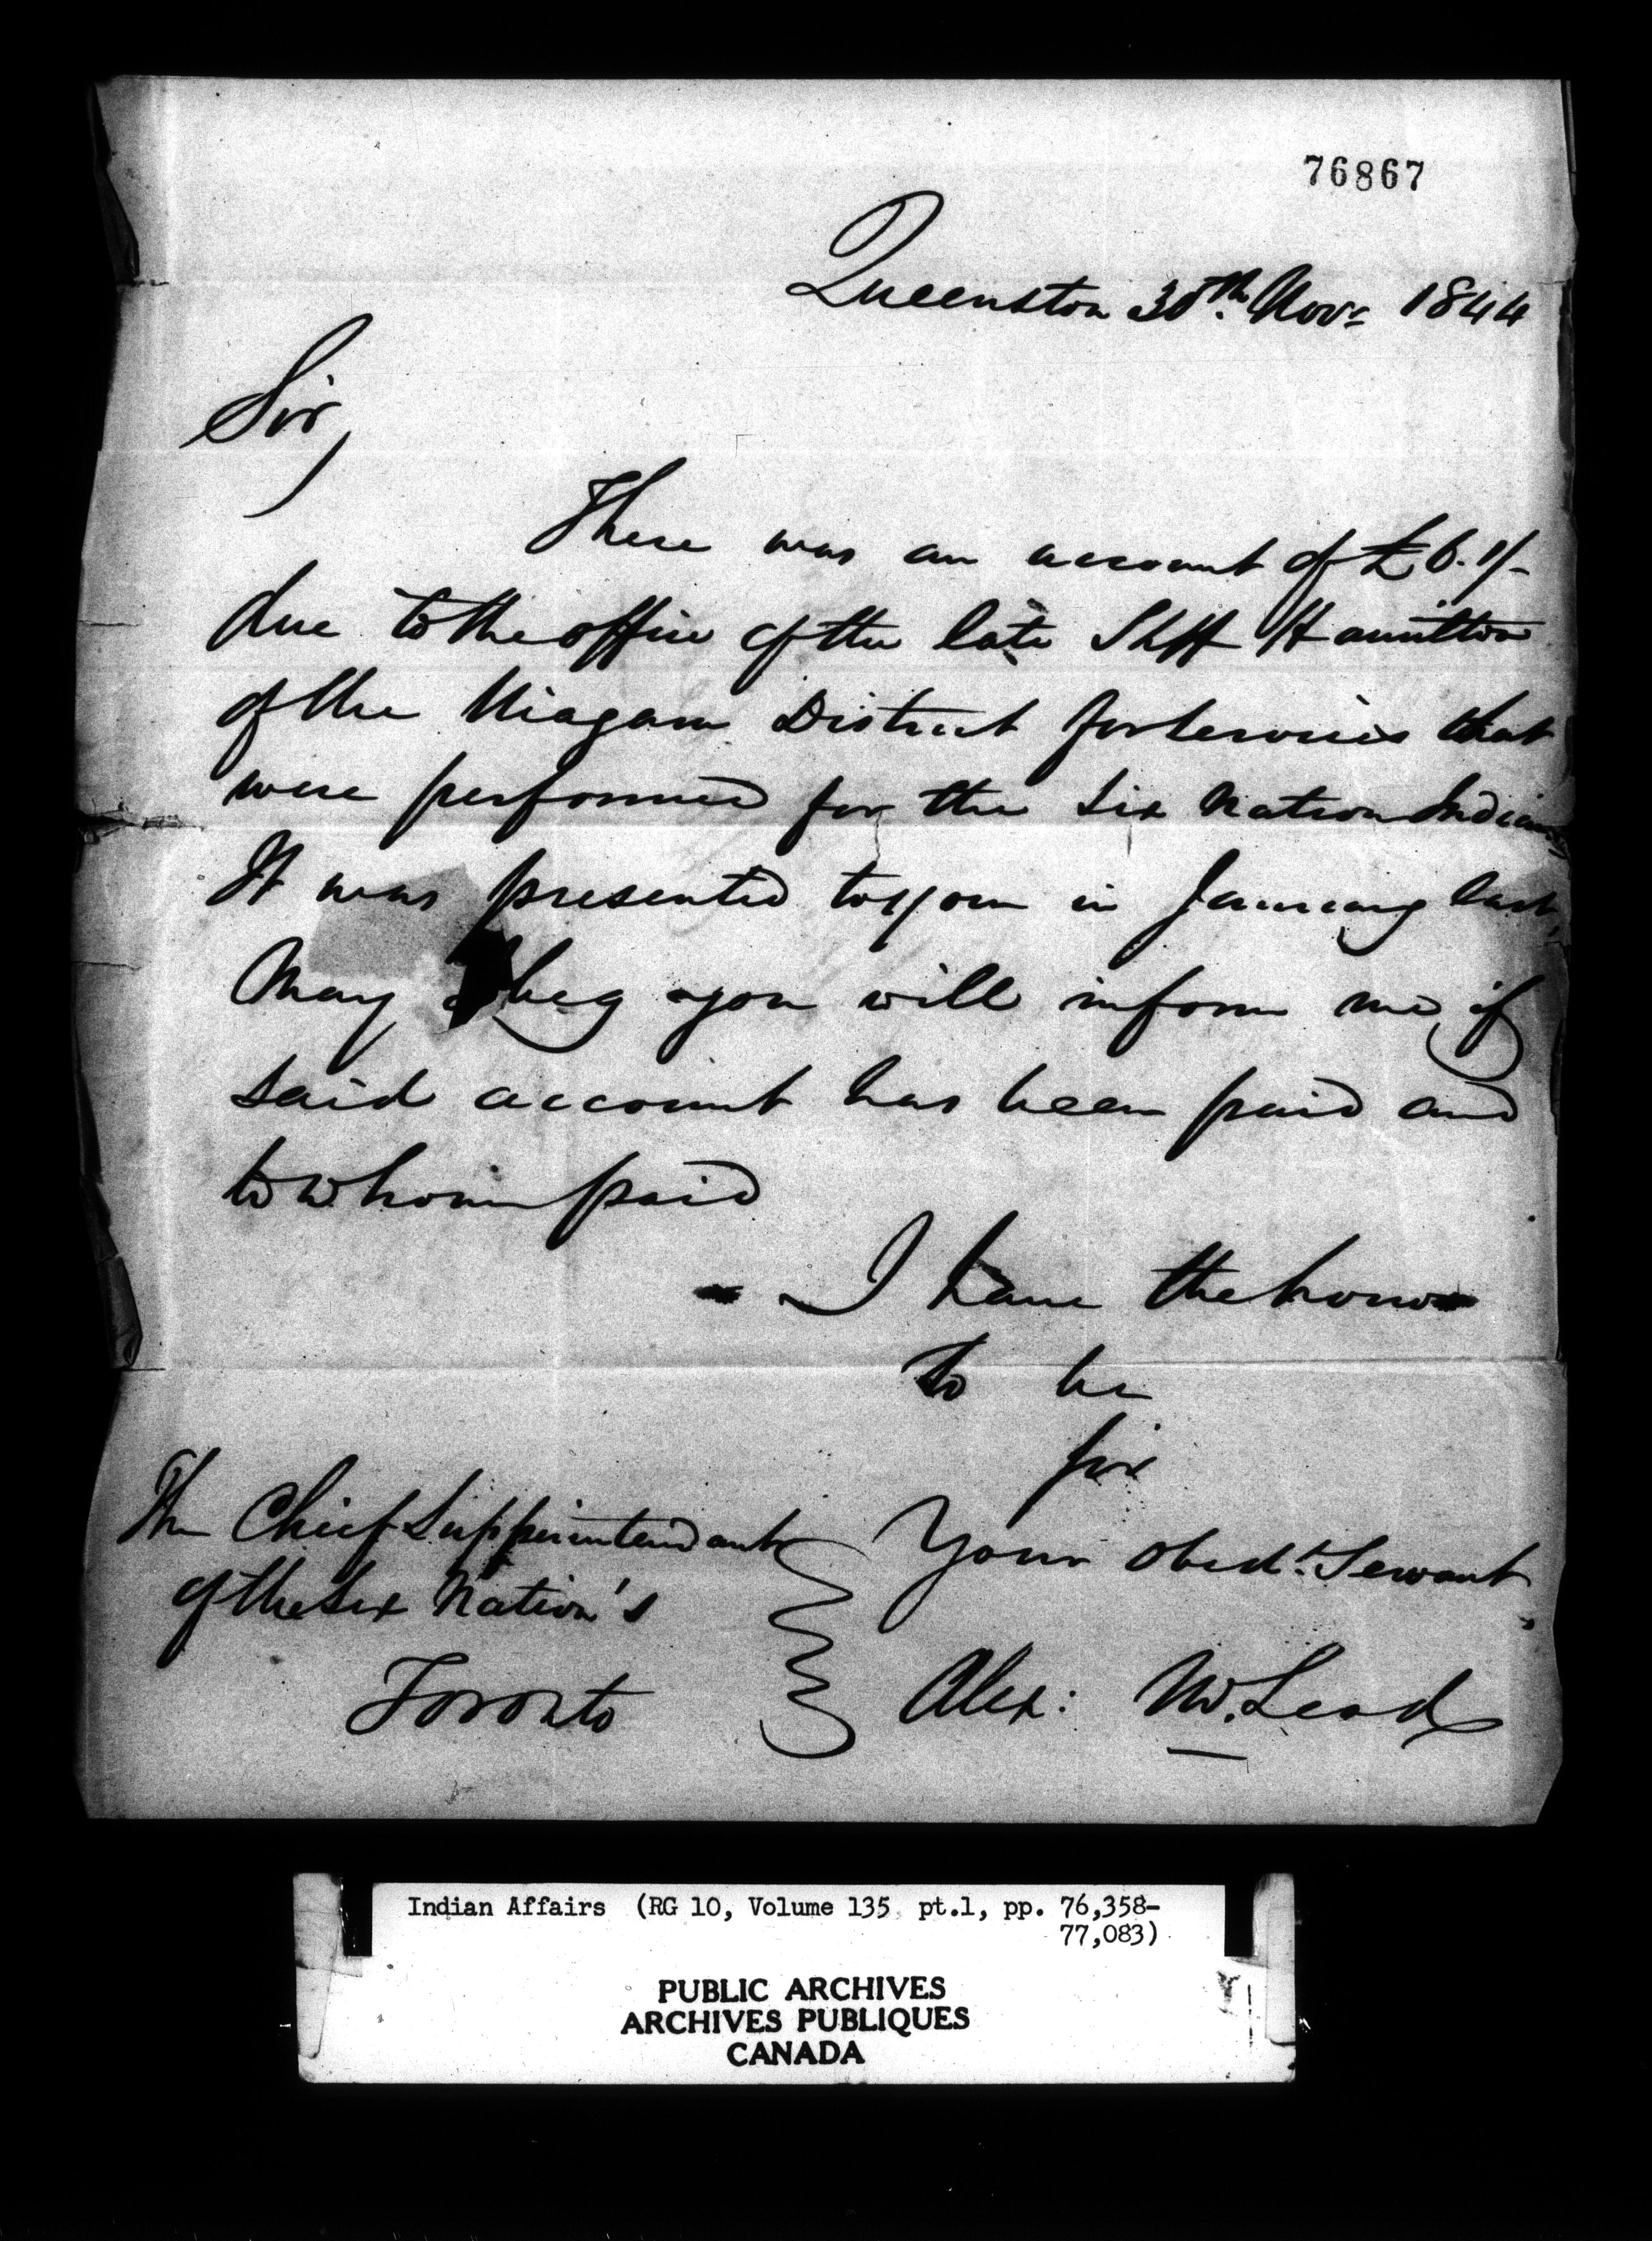 76867
Queenston 30th. Novr 1844
Sir,
There was an account of £6.1/-
due to the office of the late Shff Hamilton
of the Niagara District for services that
were performed for the Six Nation Indians,
It was presented to you in January last,
May I beg you will inform me if
said account has been paid and
to whom paid
I have the honor
to be
Sir
Your obedt. Servant,
Alex: McLeod
The Chief Supperintendant
of the Six Nation's
Toronto
Indian Affairs (RG 10, Volume 135 pt.1, pp. 76,358-
77,083)
PUBLIC ARCHIVES
ARCHIVES PUBLIQUES
CANADA